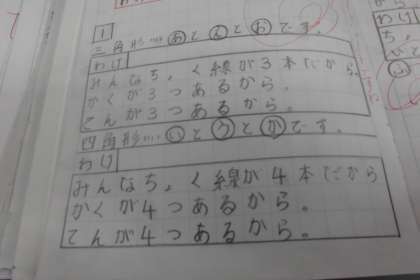 1
三角形…あとえとおです。
わけ
みんなち,く線が3本だから。
かくが3つあるから。
てんが3つあるから。
四角形…いとうとかです。
わけ
みんなち,く線が4本だから
かくが4つあるから。
てんが4つあるから。